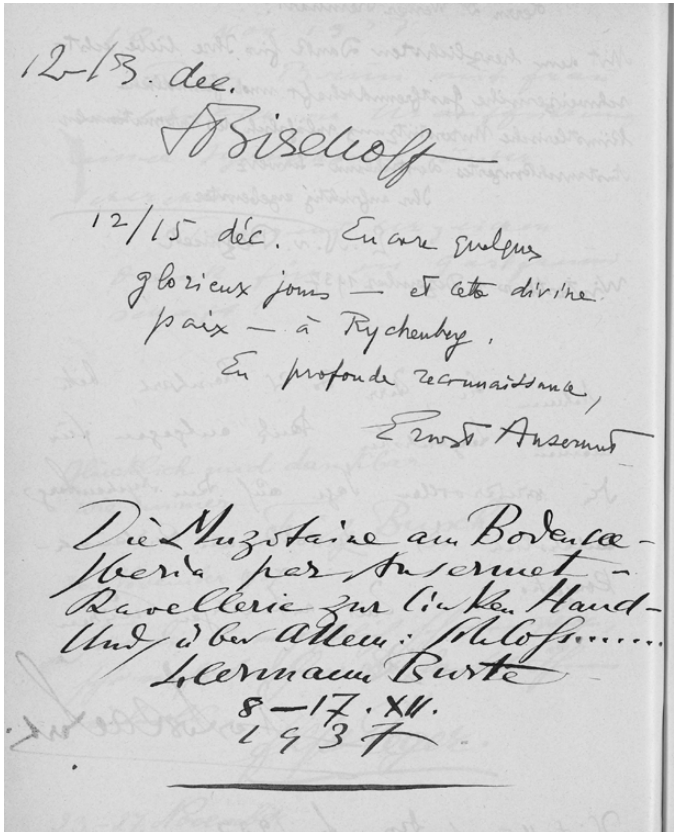 12-13. dec.
Bischoff
12/15 déc. Encore quelques
glorieux jours — et cette divine
paix — à Rychenberg.
En profonde reconnaissance,
Ernest Ansermet
Die Muzotaine am Bodensee –
Iberia par Ansermet –
Ravellerie zur linken Hand –
Und über Allem: Schloss.......
Hermann Burte
8 – 17. XII.
1937